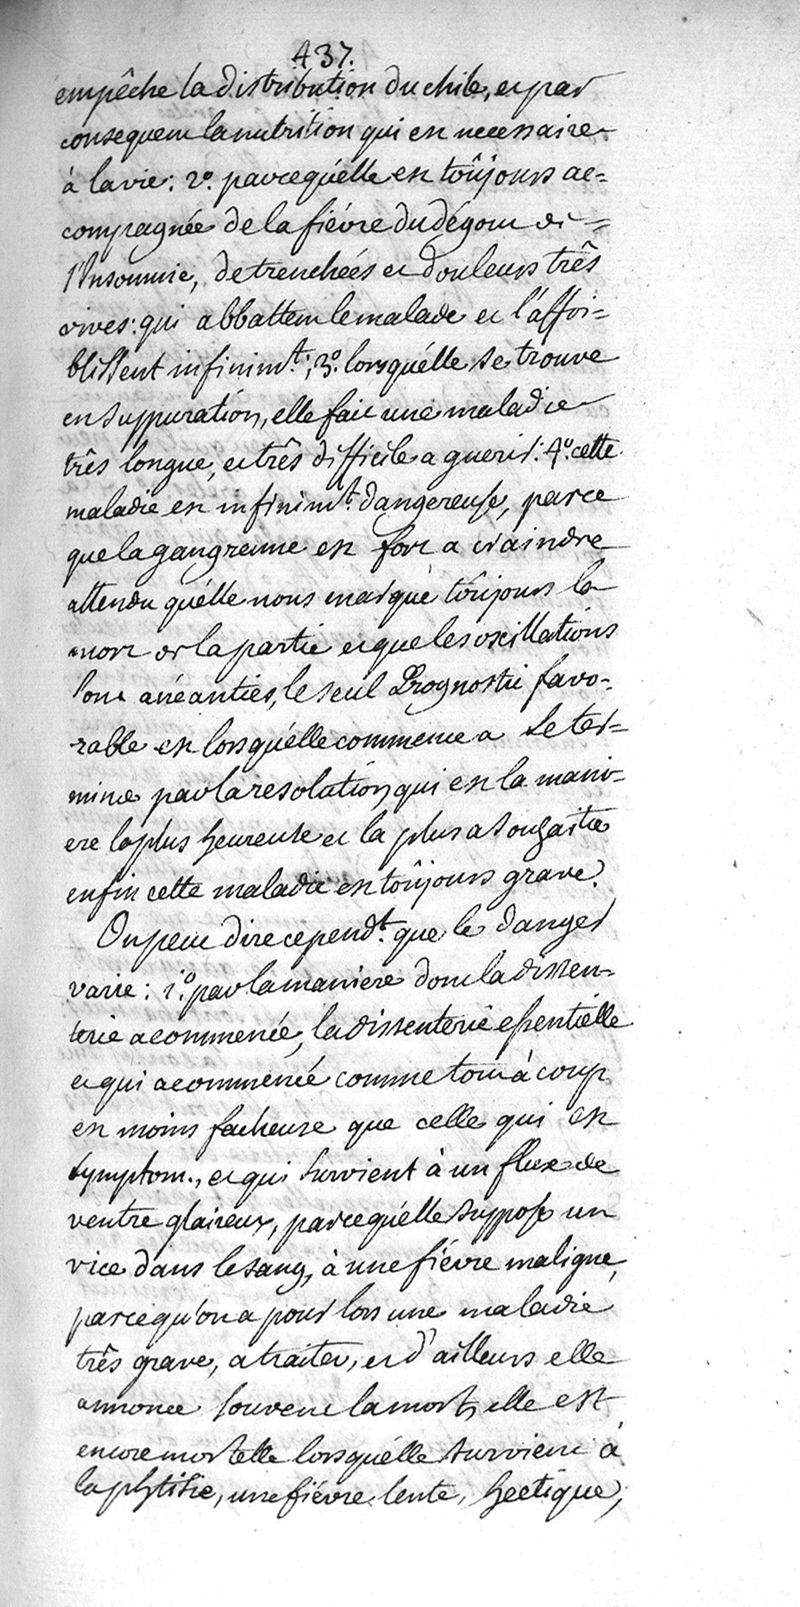 437.
empêche la distribution du chile, et par
consequent la nutrition qui est necessaire
à la vie: 2° parcequ'elle est toûjours ac=
compagnée de la fiévre du dégout de =
l'Insomnie, de trenchées et douleurs três
vives: qui abbattent le malade et l'affoi=
blissent infinim.t; 3° lorsqu'élle se trouve
en suppuration, elle fait une maladie
três longue, et três difficile a guerir: 4° cette
maladie est infinim.t dangereuse, parce
que la gangrenne est fort a craindre
attendu qu'élle nous marque toûjours la
mort de la partie et que les oscillations
sont anéanties, le seul Prognostic favo-
rable est lorsqu'élle commence a se ter=
miner par la resolution, qui est la mani-
ere la plus heureuse et la plus a souhaiter
enfin cette maladie est toûjours grave.
On peut dire cepend.t que le danger
varie: 1° par la maniere dont la dissen-
terie a commencé, la dissenterie essentiélle
et qui a commencé comme tout à coup
est moins facheuse que celle qui est
symptom., et qui survient à un flux de
ventre glaireux, parcequ'elle suppose un
vice dans le sang, à une fiévre maligne,
parcequ'on a pour lors une maladie
três grave, a traiter, et d'ailleurs elle
annonce souvent la mort, elle est
encore mortelle lorsqu'élle survient à
la phtisie, une fiévre lente, hectique,